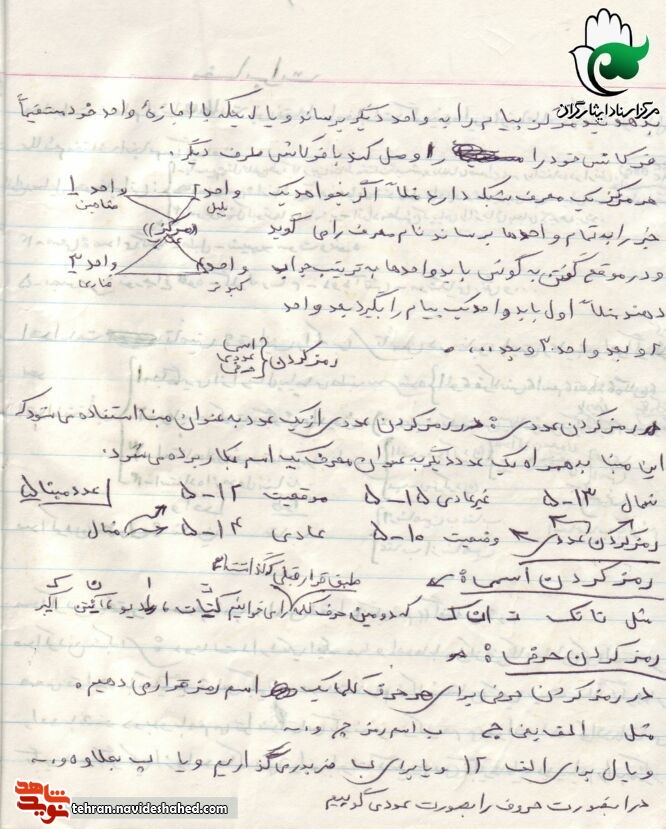 مرکز اسناد ایثارگران
مرکز پیام را به واحد دیگر برساند و یا اینکه با اجازهٔ واحد خود مستقیماً
فرکانس خود را را وصل کند با فرکانس طرف دیگر.
هر مرکز یک معرف شبکه دارد مثلاً اگر بخواهد یک
واحد ۱ واحد ۱
بلبل
((مرکز))
خبر را به تمام واحدها برساند نام معرف را می گوید
و در موقع گفتن به گوش باید واحدها به ترتیب جواب
واحد ۳
کبوتر قناری
دهند مثلاً اول باید واحد یک پیام را بگیرد بعد واحد
۲ و بعد واحد ۳ و بعد ...
رمز کردن { اسمی عددی حرفی
رمز کردن عددی : در رمز کردن عددی از یک عدد به عنوان مبنا استفاده می شود که
این مبنا به همراه یک عدد دیگر به عنوان معرف یک اسم بکار برده می شود.
شمال ۱۳-۵ غیرعادی ۱۵-۵ موقعیت ۱۲-۵ عدد مبنا ۵
رمز کردن عددی وضعیت ۱۰-۵ عادی ۱۴-۵ مثال
طبق قرار قبلی
رمز کردن اسمی :
مثل تانک ت ا ن ک که دومین حرف کلمه را می خوانیم
رمز کردن حرفی :
در رمز کردن حرفی برای هر حرف کلمات یک اسم رمز قرار می دهیم.
مثل الف یعنی چ ب اسم رمز
و یا ل برای الف ۱۲ و یا برای ب می گذاریم و یا پ
در اینصورت حروف را بصورت عددی گوییم
شاهد نوید
tehran.navideshahed.com